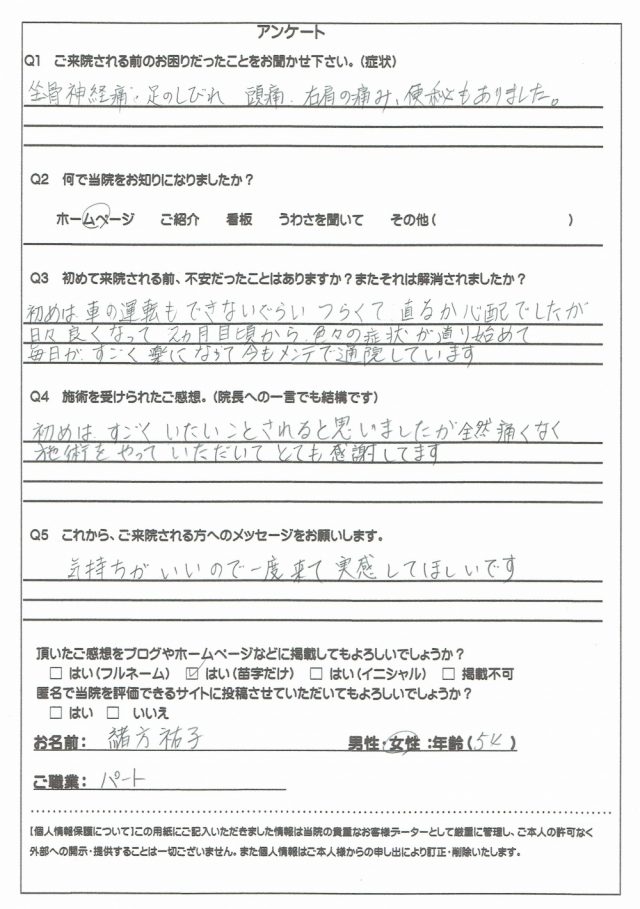 アンケート
Q1 ご来院される前のお困りだったことをお聞かせ下さい。(症状)
坐骨神経痛、足のしびれ 頭痛、右肩の痛み、便秘ともありました。
Q2 何で当院をお知りになりましたか？
ホームページ ご紹介 看板 うわさを聞いて その他( )
Q3 初めて来院される前、不安だったことはありますか？またそれは解消されましたか？
初めは 車の運転も できないぐらい つらくて 直るか心配でしたが
日々 良くなって 2ヵ月目頃から 色々の症状が直り始めて
毎日が すごく 楽になって 今もメンテで通院しています
Q4 施術を受けられたご感想。(院長への一言でも結構です)
初めは すごく いたいことされると思いましたが全然痛くなく
施術をやって いただいて とても 感謝してます
Q5 これから、ご来院される方へのメッセージをお願いします。
気持ちが いいので一度来て 実感してほしいです
頂いたご感想をブログやホームページなどに掲載してもよろしいでしょうか？
□ はい(フルネーム) ☑ はい(苗字だけ) □ はい(イニシャル) □ 掲載不可
匿名で当院を評価できるサイトに投稿させていただいてもよろしいでしょうか？
□ はい □ いいえ
お名前： 緒方祐子 男性・女性：年齢(54)
ご職業： パート
【個人情報保護について】この用紙にご記入いただきました情報は当院の貴重なお客様データーとして厳重に管理し、ご本人の許可なく
外部への開示・提供することは一切ございません。また個人情報はご本人様からの申し出により訂正・削除いたします。